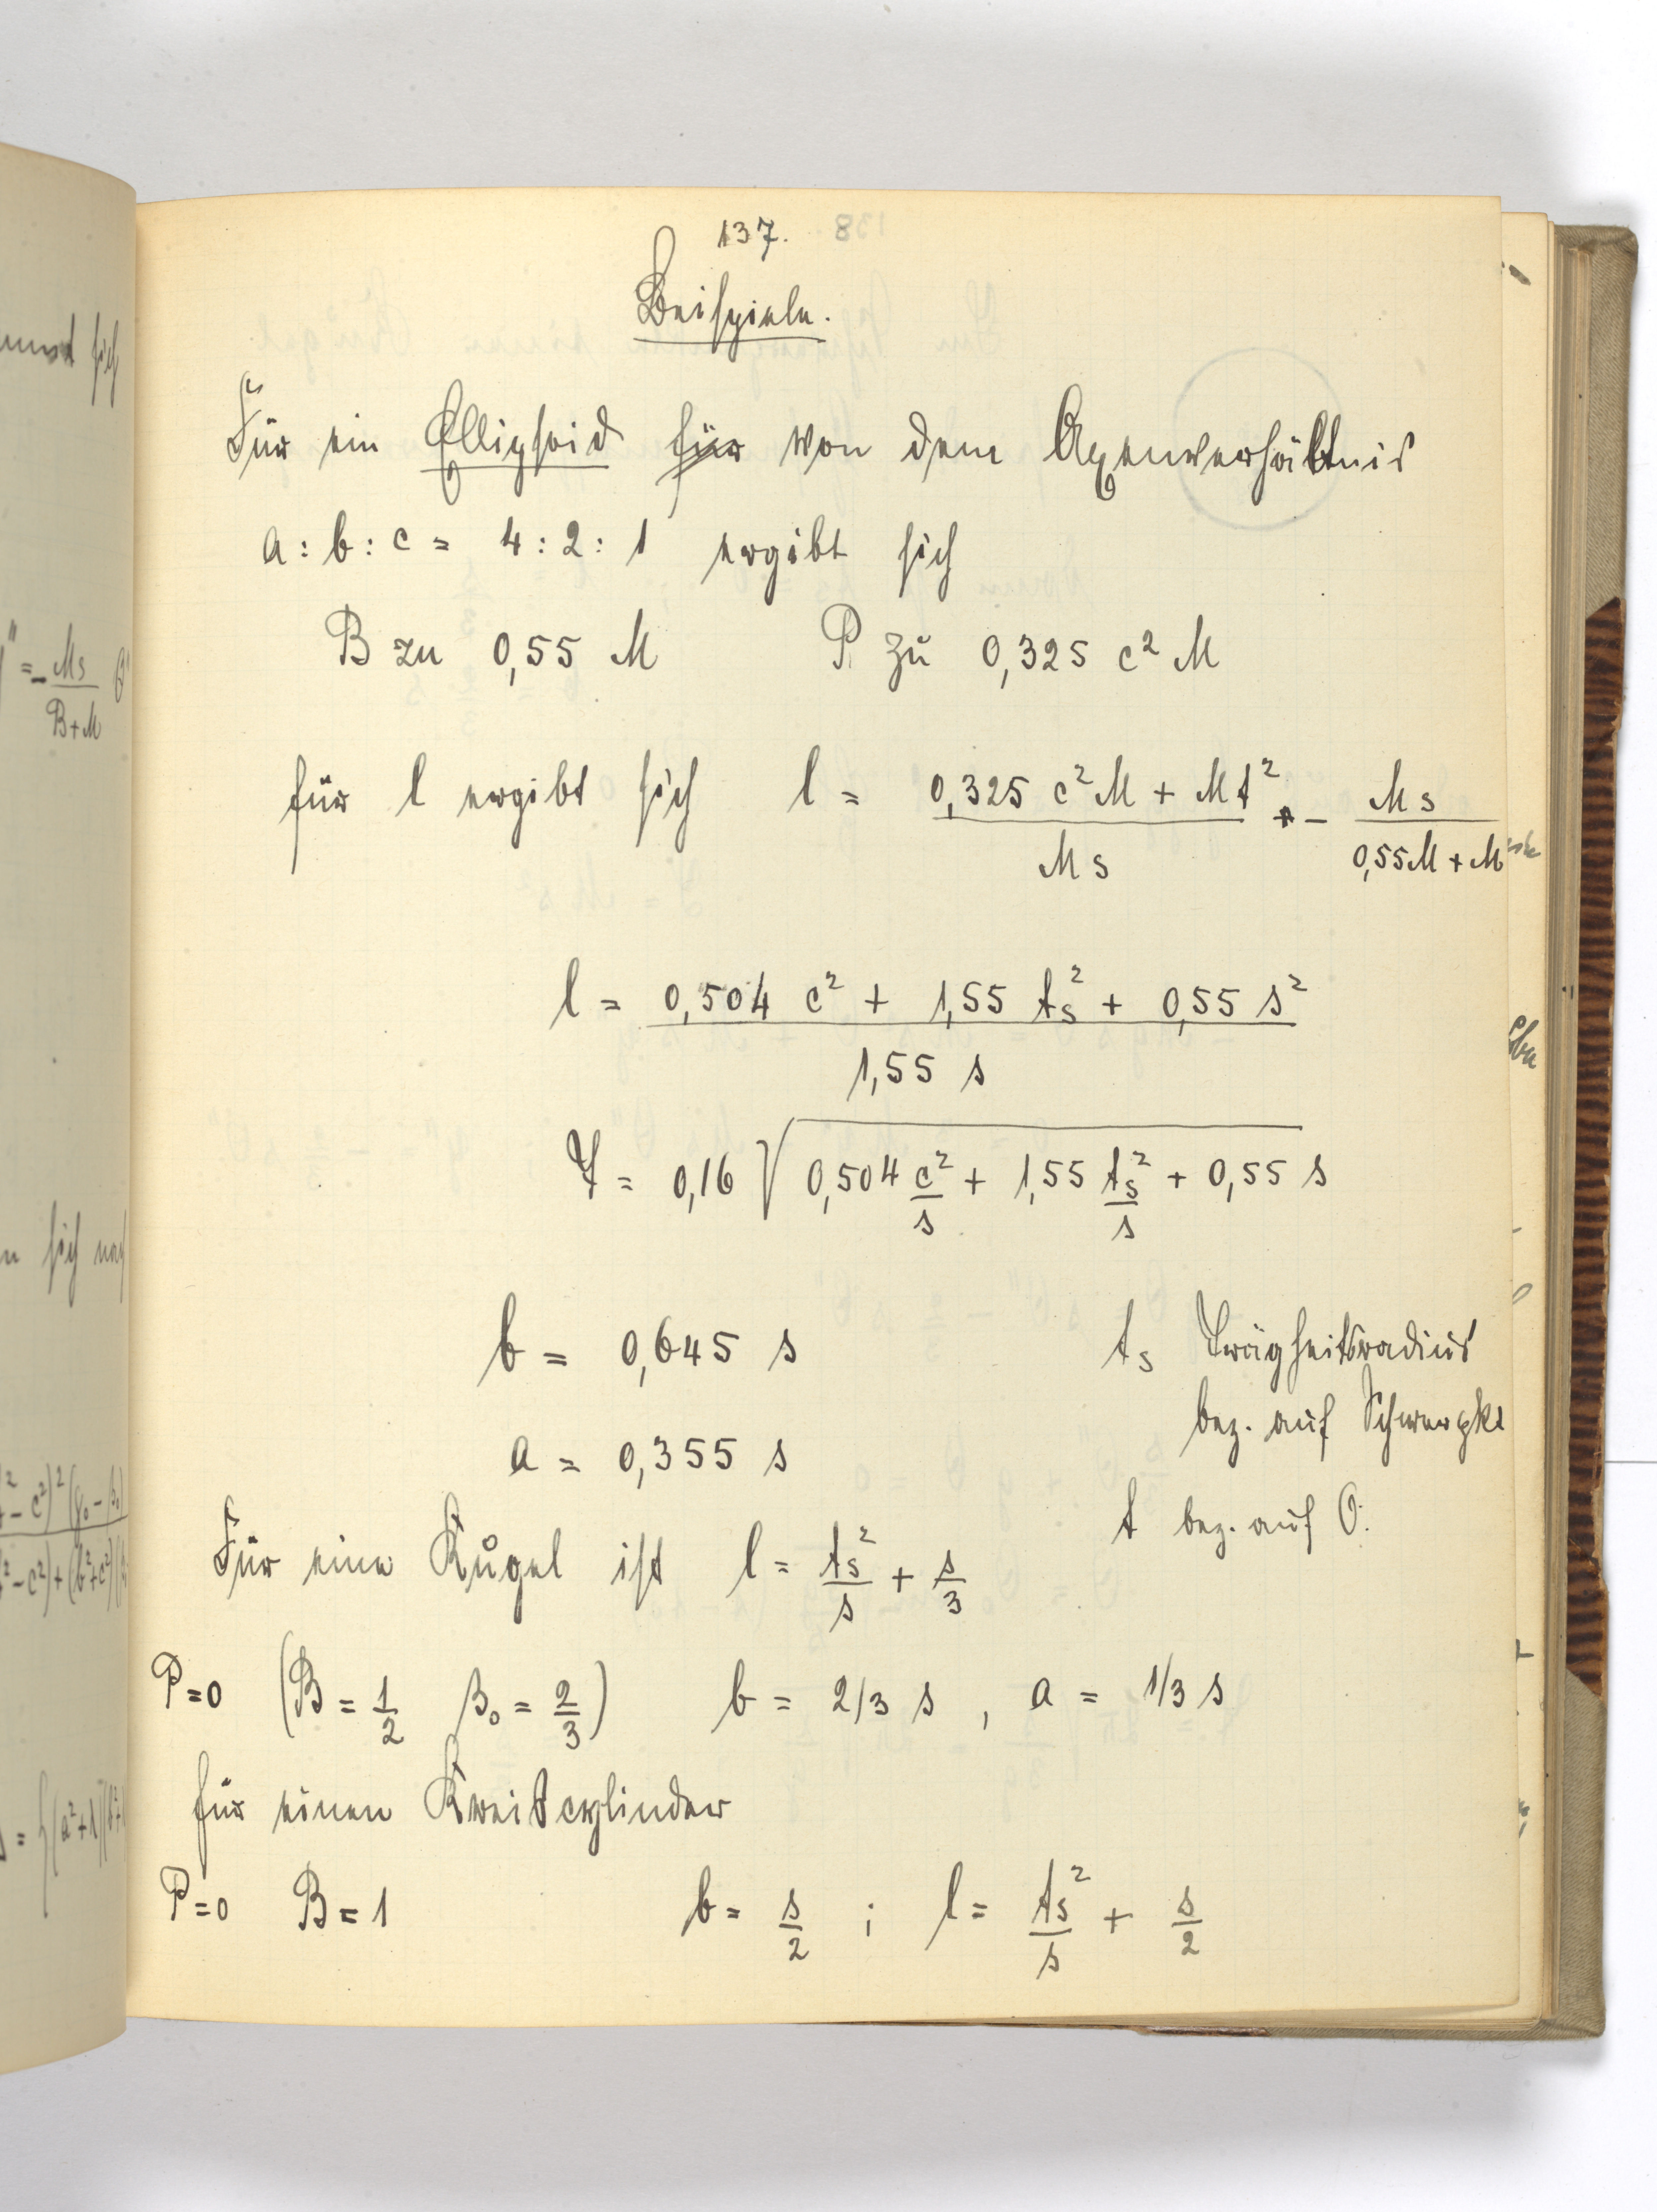 137.
Beispiele.
Für ein Ellipsoid für von dem Axenverhältnis
a : b : c = 4 : 2 : 1 ergibt sich
B zu 0,55 M P zu 0,325 c² M
für l ergibt sich l = (0,325 c² M + M t²) / (M s) - (M s) / (0,55 M + M)
l = (0,504 c² + 1,55 t_s² + 0,55 s²) / (1,55 s)
T = 0,16 √(0,504 c²/s + 1,55 t_s²/s + 0,55 s)
b = 0,645 s
t_s Trägheitsradius
bez. auf Schwerpkt
a = 0,355 s
t bez. auf O.
Für eine Kugel ist l = t_s²/s + s/3
P = 0 (B = 1/2 β₀ = 2/3) b = 2/3 s , a = 1/3 s
für einen Kreiscylinder
P = 0 B = 1 b = s/2 ; l = t_s²/s + s/2